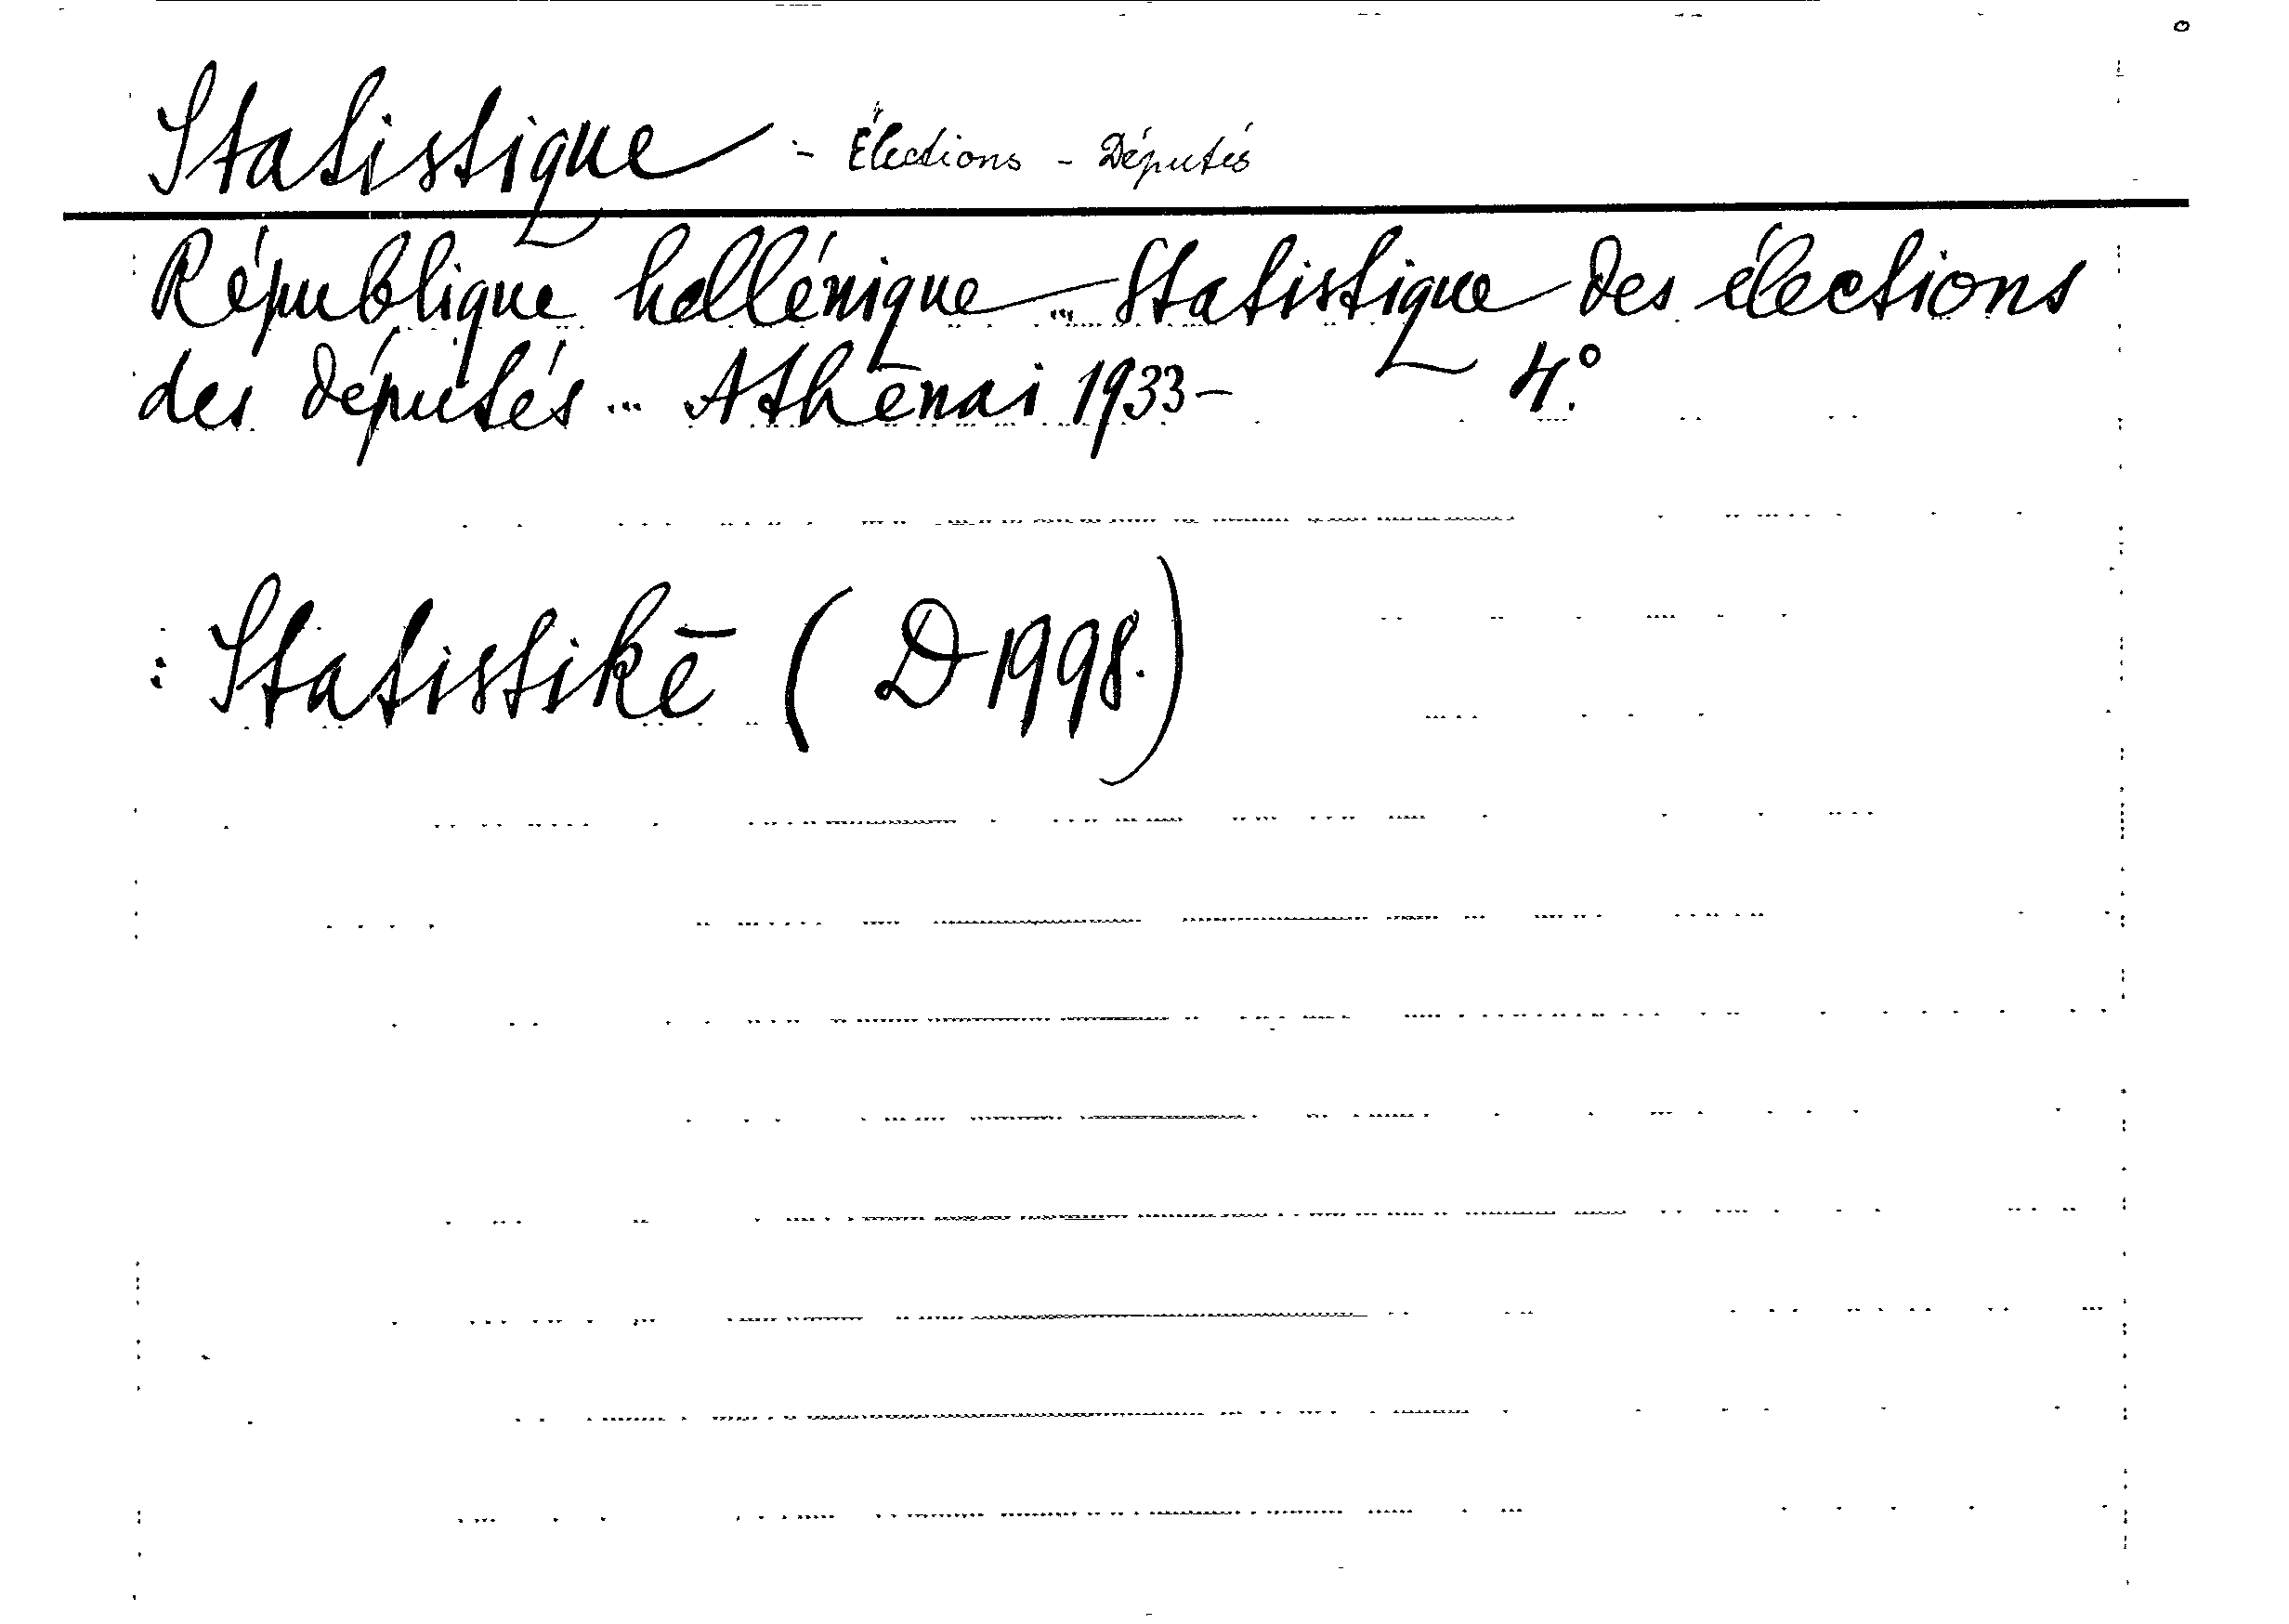 Statistique - Élections - Députés
République hellénique ... Statistique des élections
des députés ... Athēnai 1933- 4°.
: Statistikē (D 1998.)